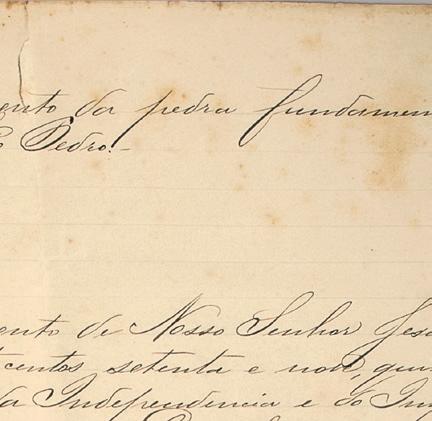 ento da pedra fundamen
o Pedro.-
ento de Nosso Senhor Jesu
centos setenta e nove, quin
da Independencia e do Im